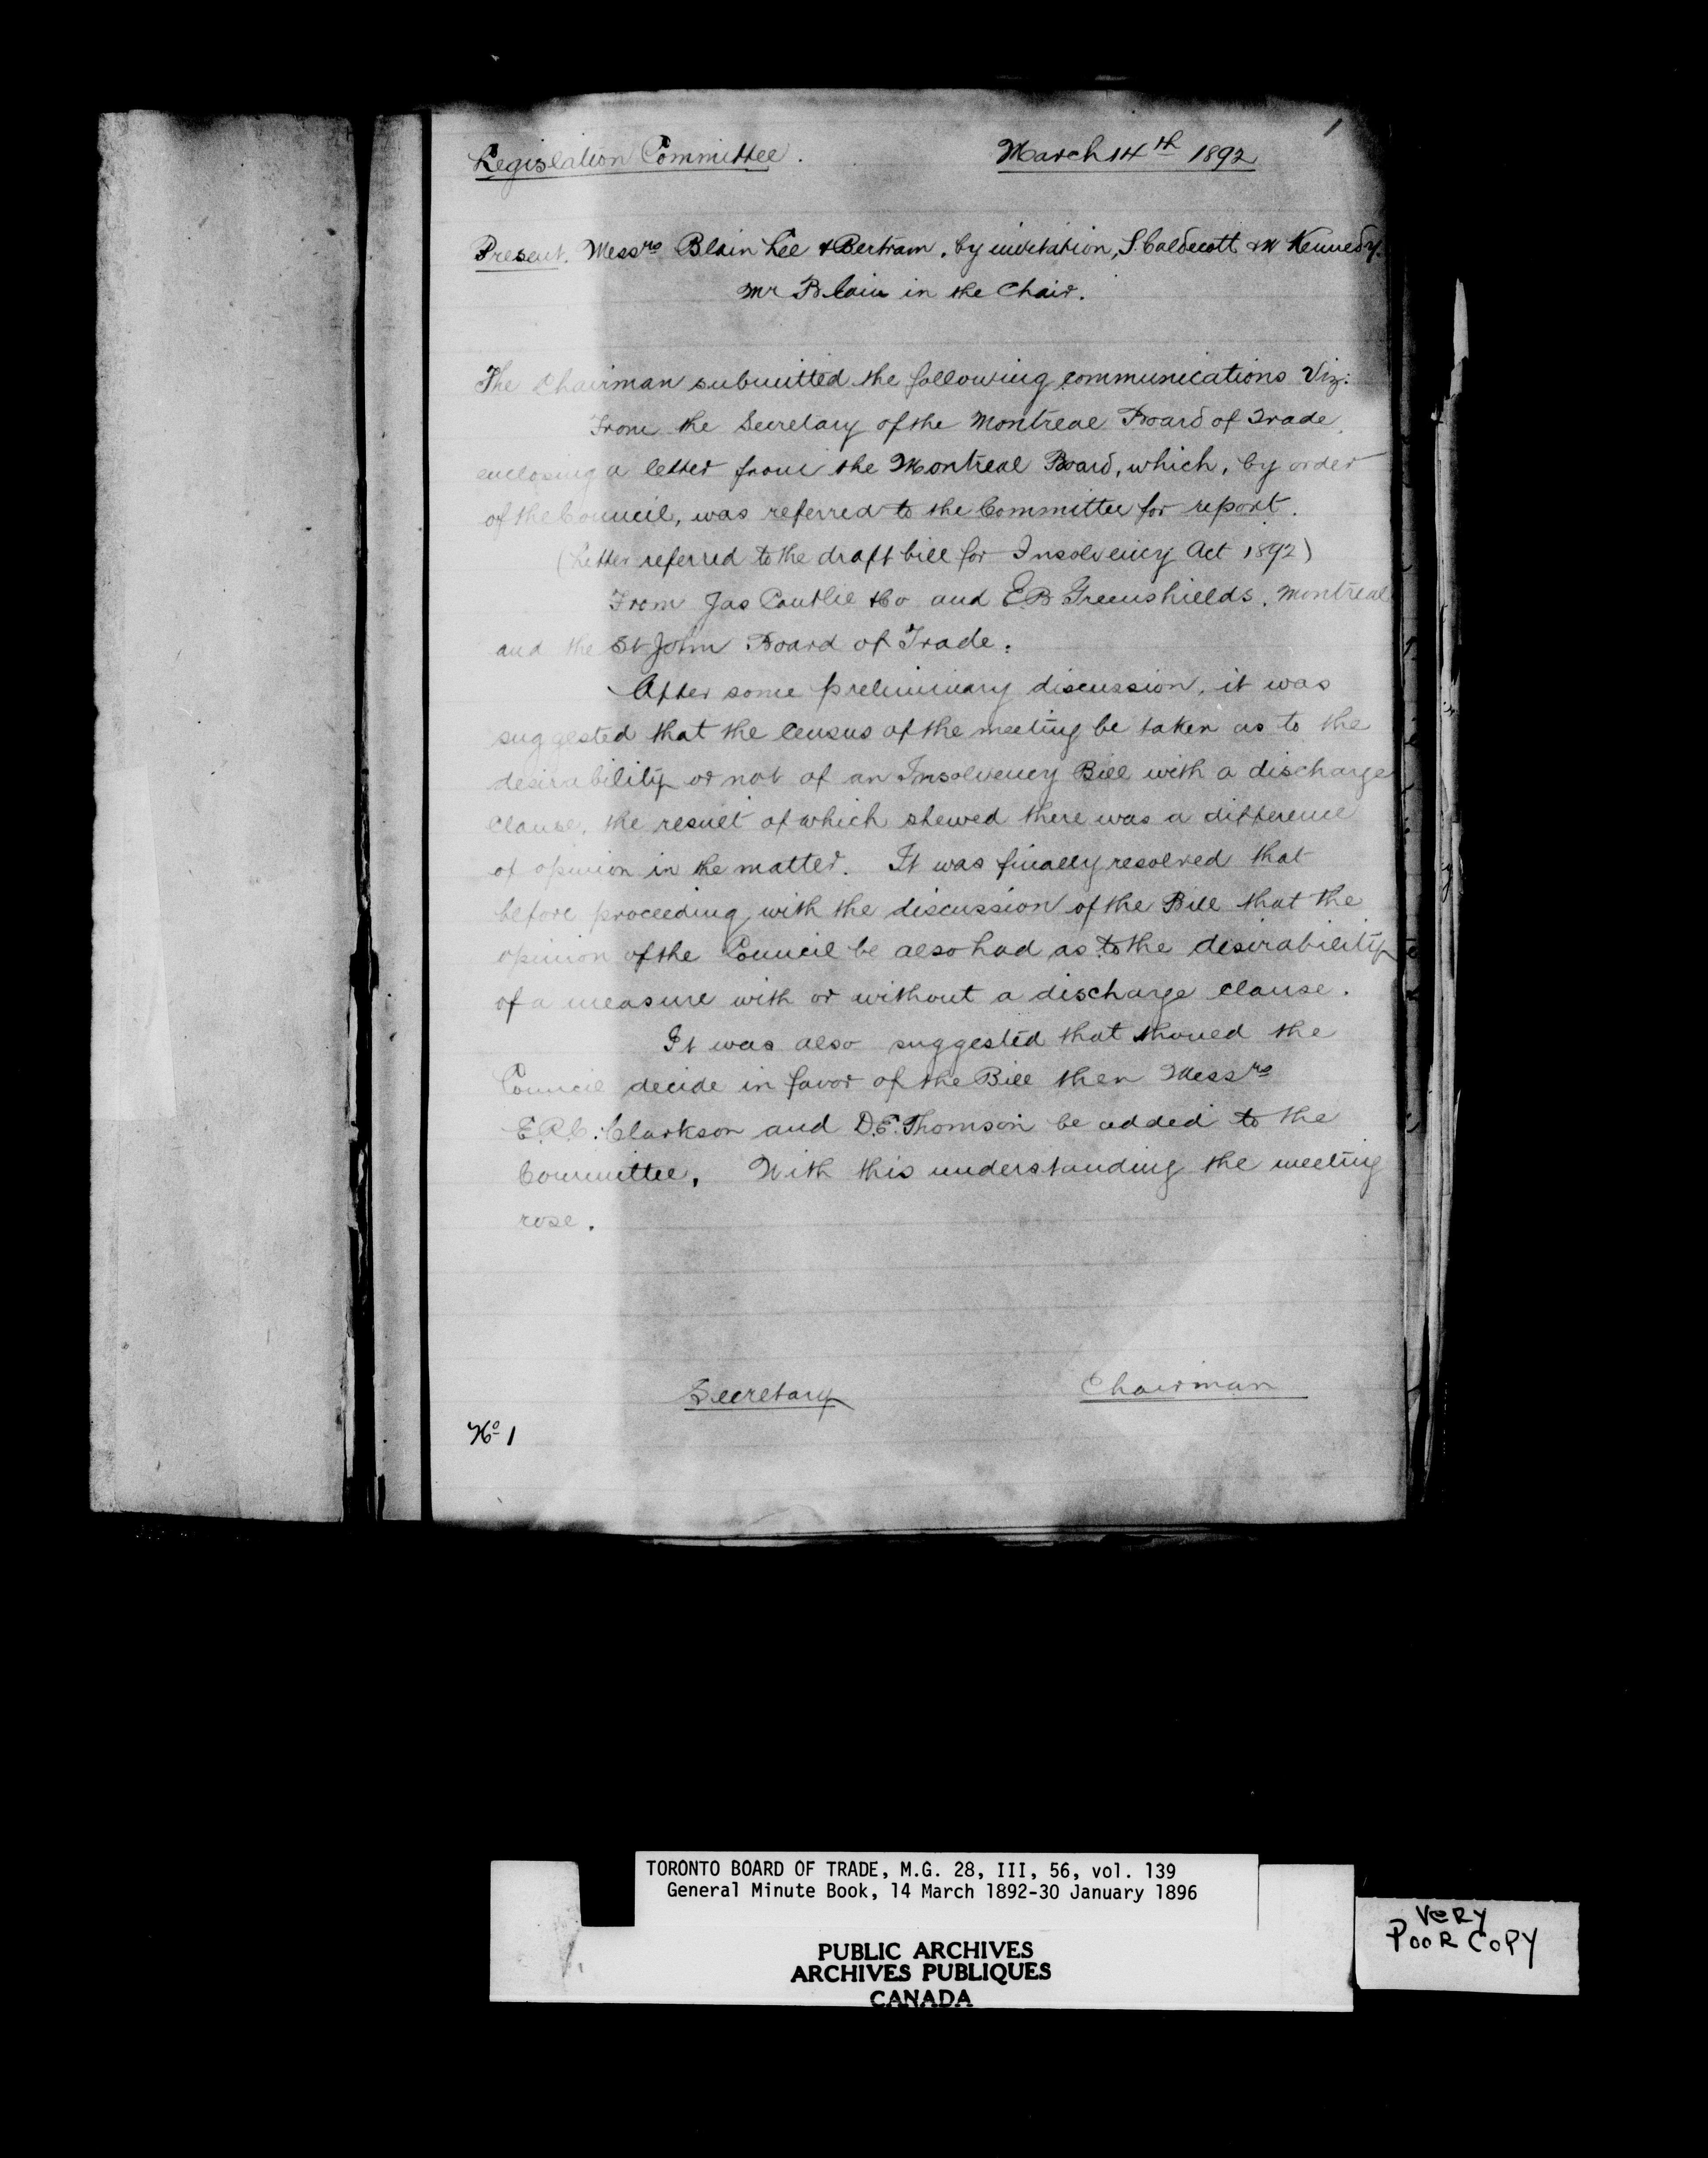 1
Legislation Committee. March 14th 1892
Present. Messrs Blain Lee & Bertram. by invitation, S. Caldecott & W Kennedy.
Mr Blain in the Chair.
The Chairman submitted the following communications Viz:
From the Secretary of the Montreal Board of Trade,
enclosing a letter from the Montreal Board, which, by order
of the Council, was referred to the Committee for report.
(Letter referred to the draft bill for Insolvency Act 1892)
From Jas Coutlie &Co and E.B. Greenshields. Montreal
and the St John Board of Trade.
After some preliminary discussion, it was
suggested that the census of the meeting be taken as to the
desirability or not of an Insolvency Bill with a discharge
clause, the result of which shewed there was a difference
of opinion in the matter. It was finally resolved that
before proceeding with the discussion of the Bill that the
opinion of the Council be also had as to the desirability
of a measure with or without a discharge clause.
It was also suggested that should the
Council decide in favor of the Bill then Messrs
E.R.C. Clarkson and D.E. Thomson be added to the
Committee. With this understanding the meeting
rose.
Secretary Chairman
No 1
TORONTO BOARD OF TRADE, M.G. 28, III, 56, vol. 139
General Minute Book, 14 March 1892-30 January 1896
PUBLIC ARCHIVES
ARCHIVES PUBLIQUES
CANADA
VeRY
PooR CoPY